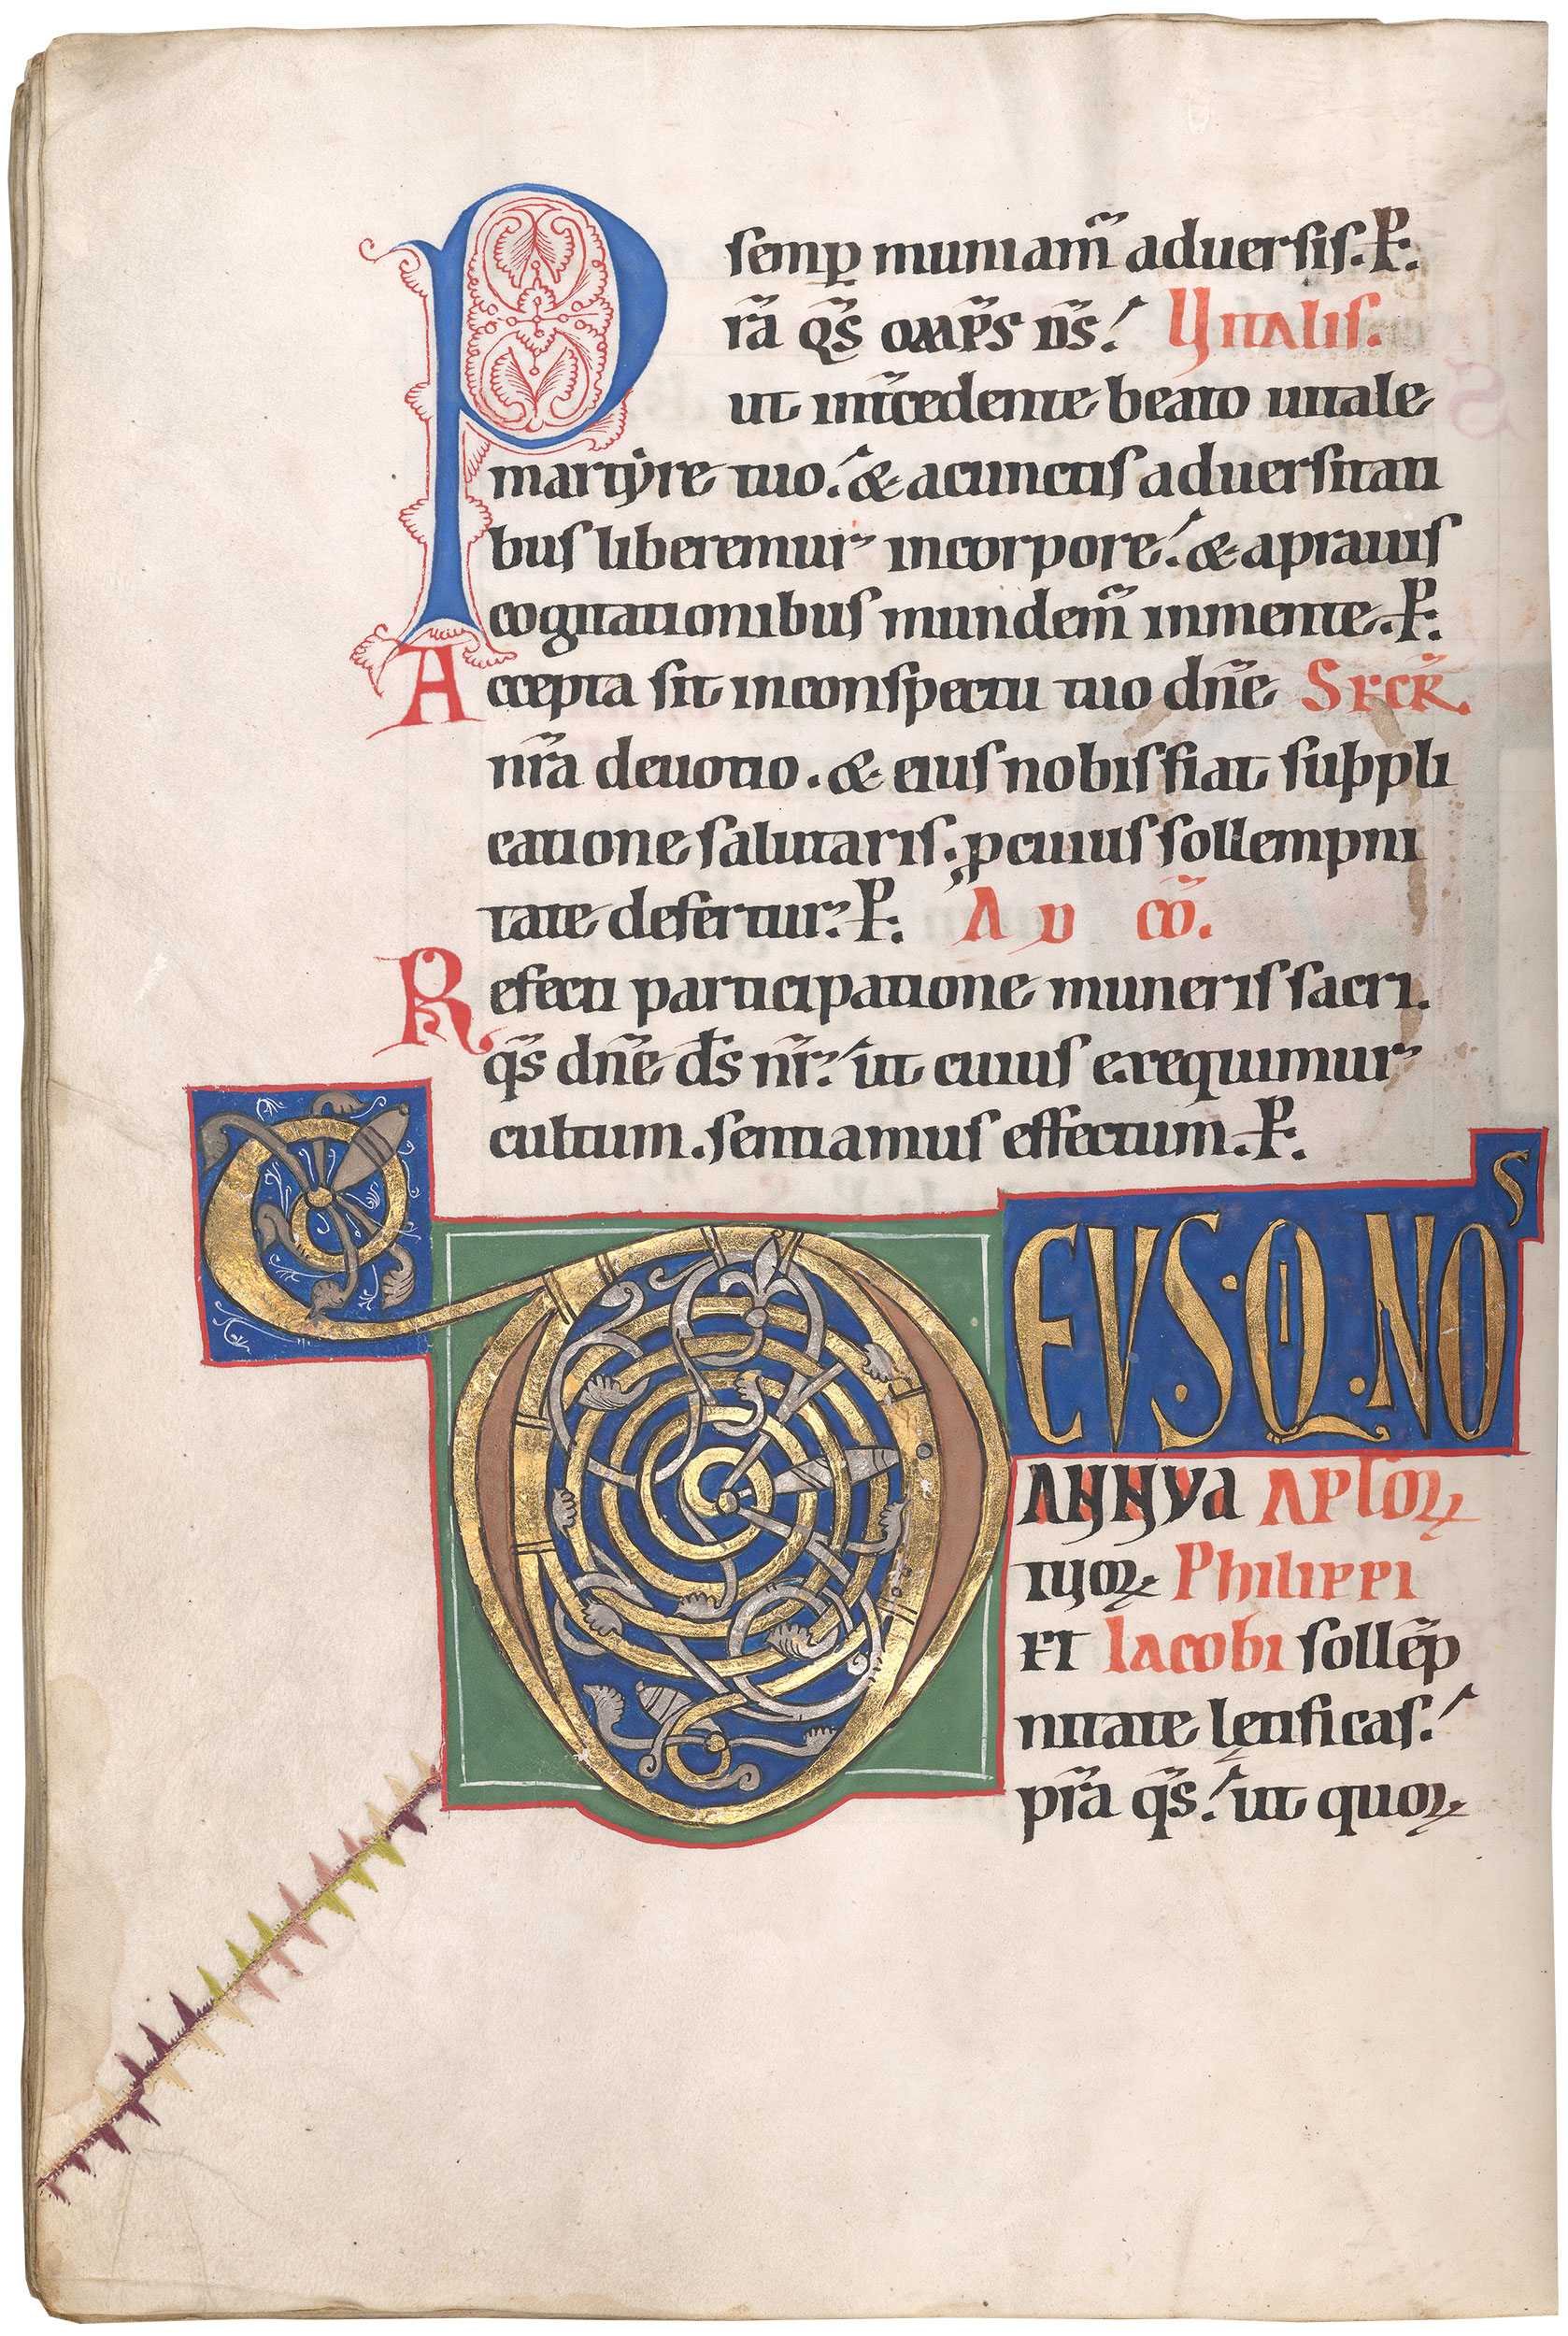 semp muniam̃ aduersis. P:
P rã qs̃ omp̃s ds̃. Vitalis.
ut int̃cedente beato uitale
martẏre tuo. & a cunctis aduersitati
bus liberemur in corpore. & a prauis
cogitationibus mundem̃ in mente. P:
Accepta sit in conspectu tuo dñe SECR̃.
nr̃a deuotio. & eius nobis fiat suppli
catione salutaris. p cuius sollempni
tate defertur. P: AD cõ.
Refecti participatione muneris sacri.
qs̃ dñe ds̃ nr̃. ut cuius exequimur
cultum. sentiamus effectum. P:
DEVS. Q. NOS
ANNVA APLOꝜ
TUOꝜ PHILIPPI
ET IACOBI sollẽp
nitate letificas.
pr̃a qs̃. ut quoꝝ